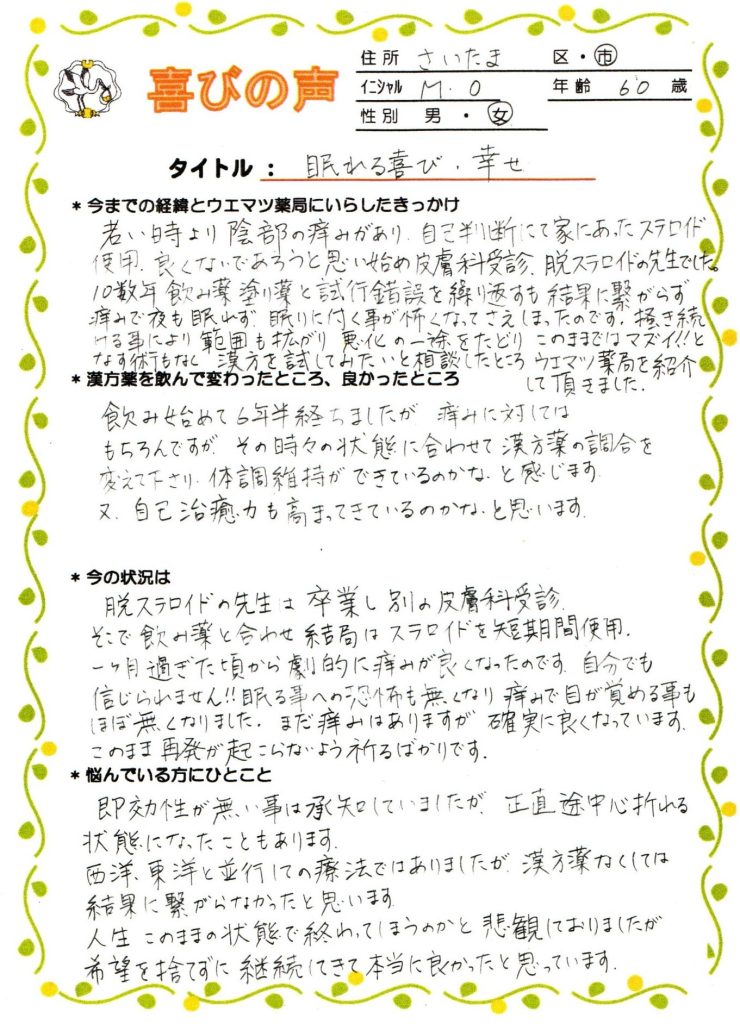 喜びの声
住所 さいたま 区・市
イニシャル M.O 年齢 60 歳
性別 男・女
タイトル： 眠れる喜び・幸せ
＊今までの経緯とウエマツ薬局にいらしたきっかけ
若い時より陰部の痒みがあり、自己判断にて家にあったステロイド
使用、良くないであろうと思い始め皮膚科受診、脱ステロイドの先生でした。
10数年飲み薬塗り薬と試行錯誤を繰り返すも結果に繋がらず
痒みで夜も眠れず、眠りに付く事が怖くなってさえしまったのです。掻き続
ける事により範囲も拡がり悪化の一途をたどりこのままではマズイ!!と
なす術もなく漢方を試してみたいと相談したところウエマツ薬局を紹介
して頂きました。
＊漢方薬を飲んで変わったところ、良かったところ
飲み始めて6年半経ちましたが痒みに対しては
もちろんですが、その時々の状態に合わせて漢方薬の調合を
変えて下さり、体調維持ができているのかな、と感じます。
又、自己治癒力も高まってきているのかな、と思います。
＊今の状況は
脱ステロイドの先生は卒業し別の皮膚科受診、
そこで飲み薬と合わせ結局はステロイドを短期間使用、
一ヶ月過ぎた頃から劇的に痒みが良くなったのです。自分でも
信じられません!!眠る事への恐怖も無くなり痒みで目が覚める事も
ほぼ無くなりました。まだ痒みはありますが確実に良くなっています。
このまま再発が起こらないよう祈るばかりです。
＊悩んでいる方にひとこと
即効性が無い事は承知していましたが、正直途中心折れる
状態になったこともあります。
西洋、東洋と並行しての療法ではありましたが、漢方薬なくしては
結果に繋がらなかったと思います。
人生このままの状態で終わってしまうのかと悲観しておりましたが
希望を捨てずに継続してきて本当に良かったと思っています。